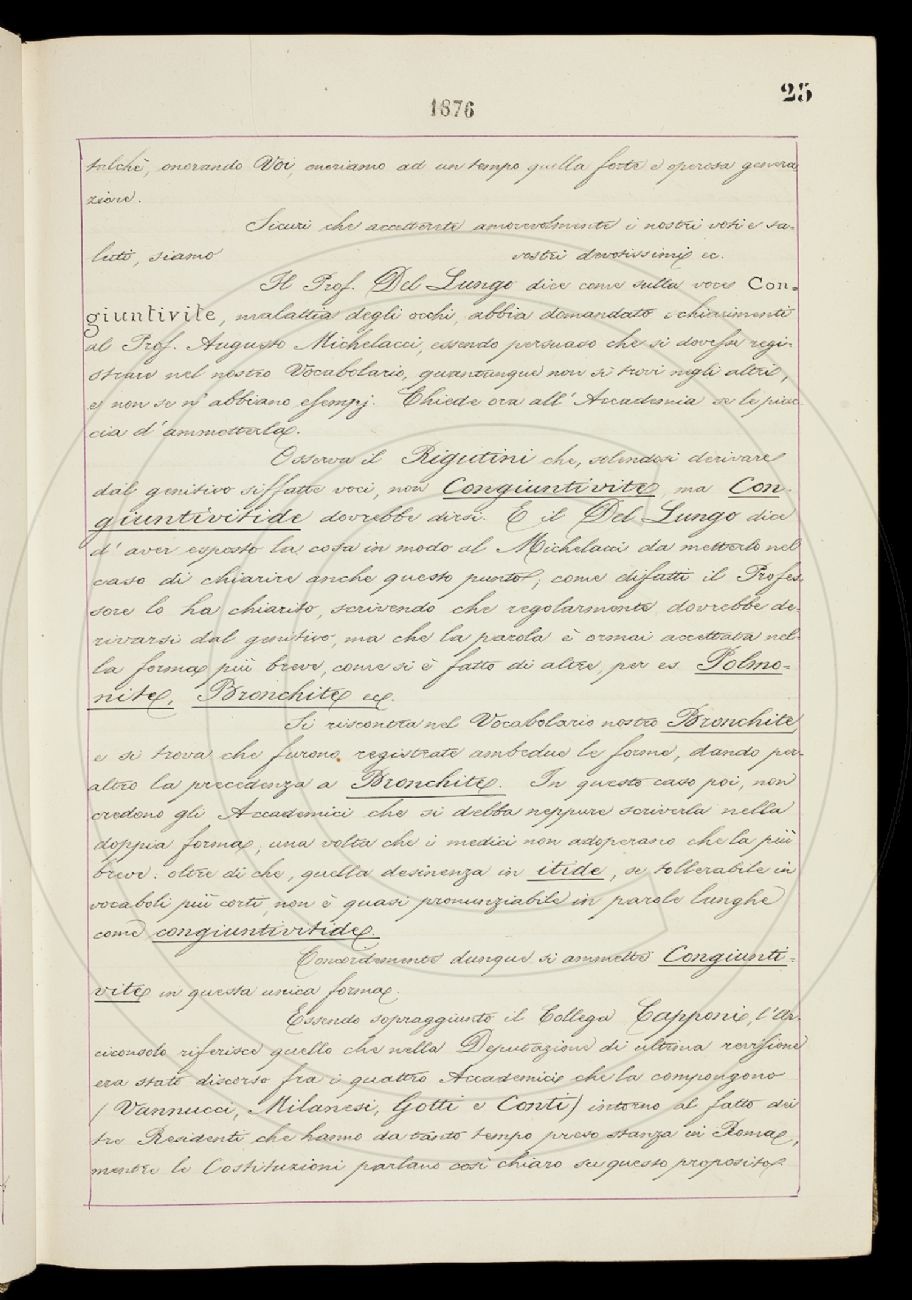 1876
25
talchè, onorando Voi, onoriamo ad un tempo quella forte e operosa genera
zione.
Sicuri che accetterete amorevolmente i nostri voti e sa-
luti, siamo vostri devotissimi ec.
Il Prof. Del Lungo dice come sulla voce Con-
giuntivite, malattia degli occhi, abbia domandato schiarimenti
al Prof. Augusto Michelacci, essendo persuaso che si dovesse regi-
strare nel nostro Vocabolario, quantunque non si trovi negli altri,
e non se n'abbiano esempj. Chiede ora all'Accademia se le piac-
cia d'ammetterla.
Osserva il Rigutini che, solendosi derivare
dal genitivo siffatte voci, non Congiuntivite, ma Con-
giuntivitide dovrebbe dirsi. E il Del Lungo dice
d'aver esposto la cosa in modo al Michelacci da metterlo nel
caso di chiarire anche questo punto; come difatti il Profes-
sore lo ha chiarito, scrivendo che regolarmente dovrebbe de-
rivarsi dal genitivo, ma che la parola è ormai accettata nel-
la forma più breve, come si è fatto di altre, per es. Polmo-
nite, Bronchite ec.
Si riscontra nel Vocabolario nostro Bronchite,
e si trova che furono registrate ambedue le forme, dando per-
altro la precedenza a Bronchite. In questo caso poi, non
credono gli Accademici che si debba neppure scriverla nella
doppia forma, una volta che i medici non adoperano che la più
breve: oltre di che, quella desinenza in itide, se tollerabile in
vocaboli più corti, non è quasi pronunziabile in parole lunghe
come congiuntivitide.
Concordemente dunque si ammette Congiunti-
vite in questa unica forma.
Essendo sopraggiunto il Collega Capponi, l'Ar-
ciconsolo riferisce quello che nella Deputazione di ultima revisione
era stato discorso fra i quattro Accademici che la compongono
(Vannucci, Milanesi, Gotti e Conti) intorno al fatto dei
tre Residenti che hanno da tanto tempo preso stanza in Roma,
mentre le Costituzioni parlano così chiaro su questo proposito.